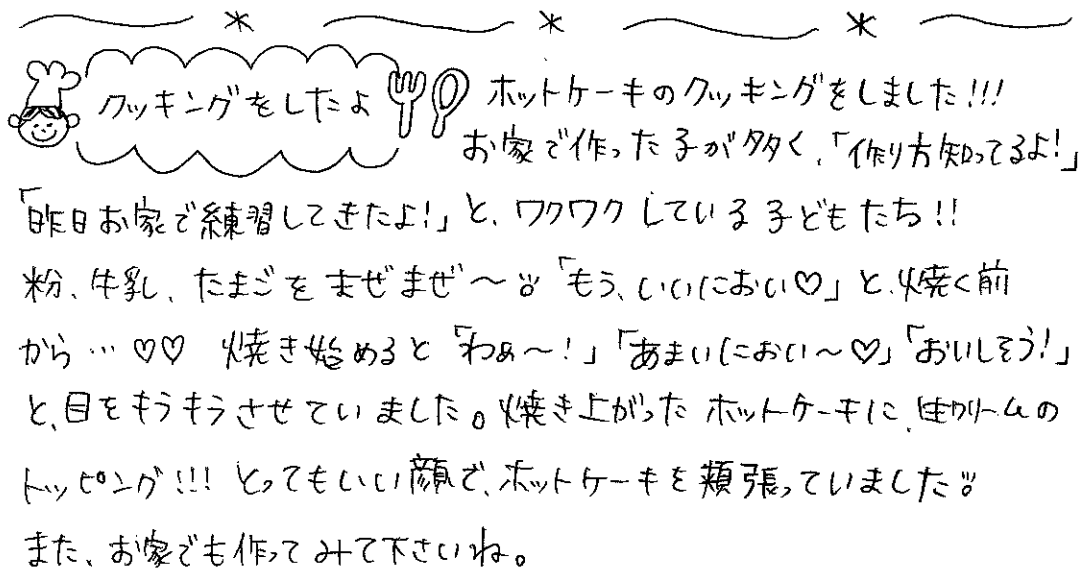 クッキングをしたよ
ホットケーキのクッキングをしました!!!
お家で作った子が多く、「作り方知ってるよ!」
「昨日お家で練習してきたよ!」と、ワクワクしている子どもたち!!
粉、牛乳、たまごをまぜまぜ〜 「もう、いいにおい♡」と、焼く前
から…♡♡ 焼き始めると「わぁ〜!」「あまいにおい〜♡」「おいしそう!」
と、目をキラキラさせていました。焼き上がったホットケーキに、生クリームの
トッピング!!! とってもいい顔で、ホットケーキを頬張っていました
また、お家でも作ってみて下さいね。